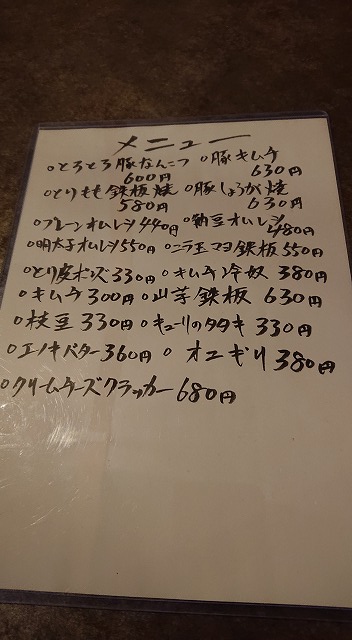 メニュー
○とろとろ豚なんこつ ○豚キムチ
600円 630円
○とりもも鉄板焼 ○豚しょうが焼
580円 630円
○プレーンオムレツ440円 ○納豆オムレツ
480円
○明太子オムレツ550円 ○ニラ玉マヨ鉄板550円
○とり皮ポンズ330円 ○キムチ冷奴 380円
○キムチ300円 ○山芋鉄板 630円
○枝豆 330円 ○キューリのタタキ 330円
○エノキバター360円 ○オニギリ380円
○クリームチーズクラッカー680円